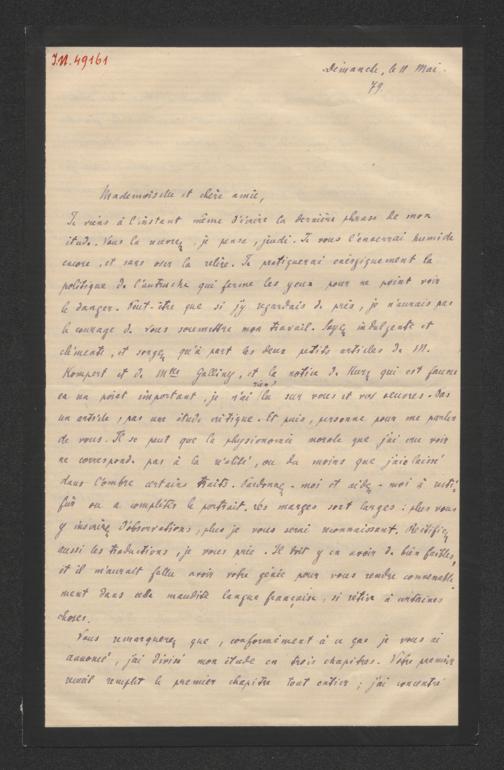 I.N. 49161
Dimanche, le 11 Mai.
79.
Mademoiselle et chère amie,
Je viens à l'instant même d'écrire la dernière phrase de mon
étude. Vous la recevrez, je pense, jeudi. Je vous l'enverrai humide
encore, et sans oser la relire. Je pratiquerai énergiquement la
politique de l'autruche qui ferme les yeux pour ne point voir
le danger. Peut-être que si j'y regardais de près, je n'aurais pas
le courage de vous soumettre mon travail. Soyez indulgente et
clémente, et songez qu'à part les deux petits articles de M.
Kompert et de Mlle Galliny, et la notice de Kurz qui est fausse
en un point important, je n'ai rien lu sur vous et vos oeuvres. Pas
un article, pas une étude critique. Et puis, personne pour me parler
de vous. Il se peut que la physionomie morale que j'ai cru voir
ne corresponde pas à la réalité, ou du moins que j'aie laissé
dans l'ombre certains traits. Pardonnez-moi et aidez-moi à recti-
fier ou à compléter le portrait. Les marges sont larges: plus vous
y inscrirez d'observations, plus je vous serai reconnaissant. Rectifiez
aussi les traductions, je vous prie. Il doit y en avoir de bien faibles,
et il m'aurait fallu avoir votre génie pour vous rendre convenable-
ment dans cette maudite langue française, si rétive à certaines
choses.
Vous remarquerez que, conformément à ce que je vous ai
annoncé, j'ai divisé mon étude en trois chapitres. Votre premier
recueil remplit le premier chapitre tout entier; j'ai concentré